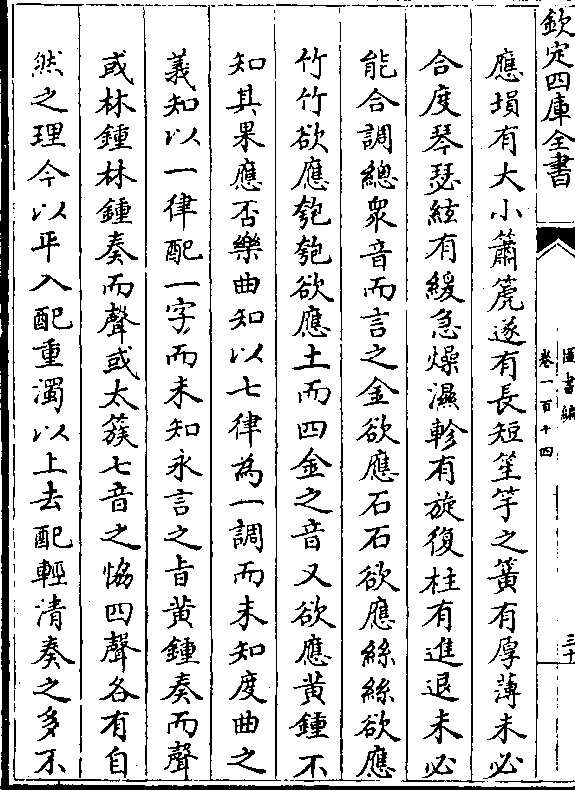 欽定四庫全書
圖書編
卷一百十四
三十
應塤有大小簫箎篴有長短笙竽之簧有厚薄未必
合度琴瑟絃有緩急燥濕軫有旋復柱有進退未必
能合調總衆音而言之金欲應石石欲應絲絲欲應
竹竹欲應匏匏欲應土而四金之音又欲應黄鍾不
知其果應否樂曲知以七律為一調而未知度曲之
義知以一律配一字而未知永言之旨黄鍾奏而聲
或林鍾林鍾奏而聲或太簇七音之恊四聲各有自
然之理今以平入配重濁以上去配輕清奏之多不